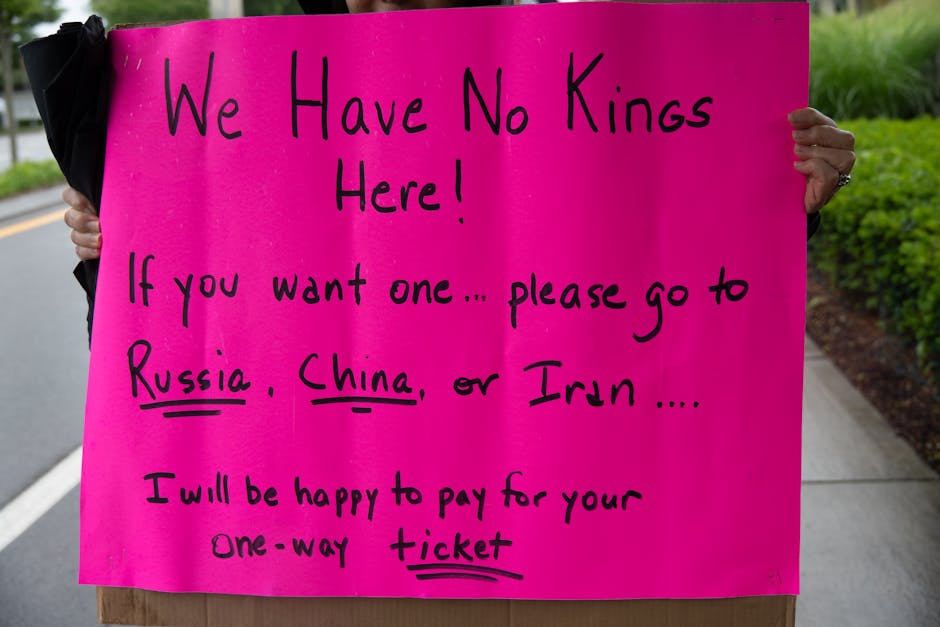 We Have No Kings
Here!
If you want one... please go to
Russia, China, or Iran ....
I will be happy to pay for your
one-way ticket